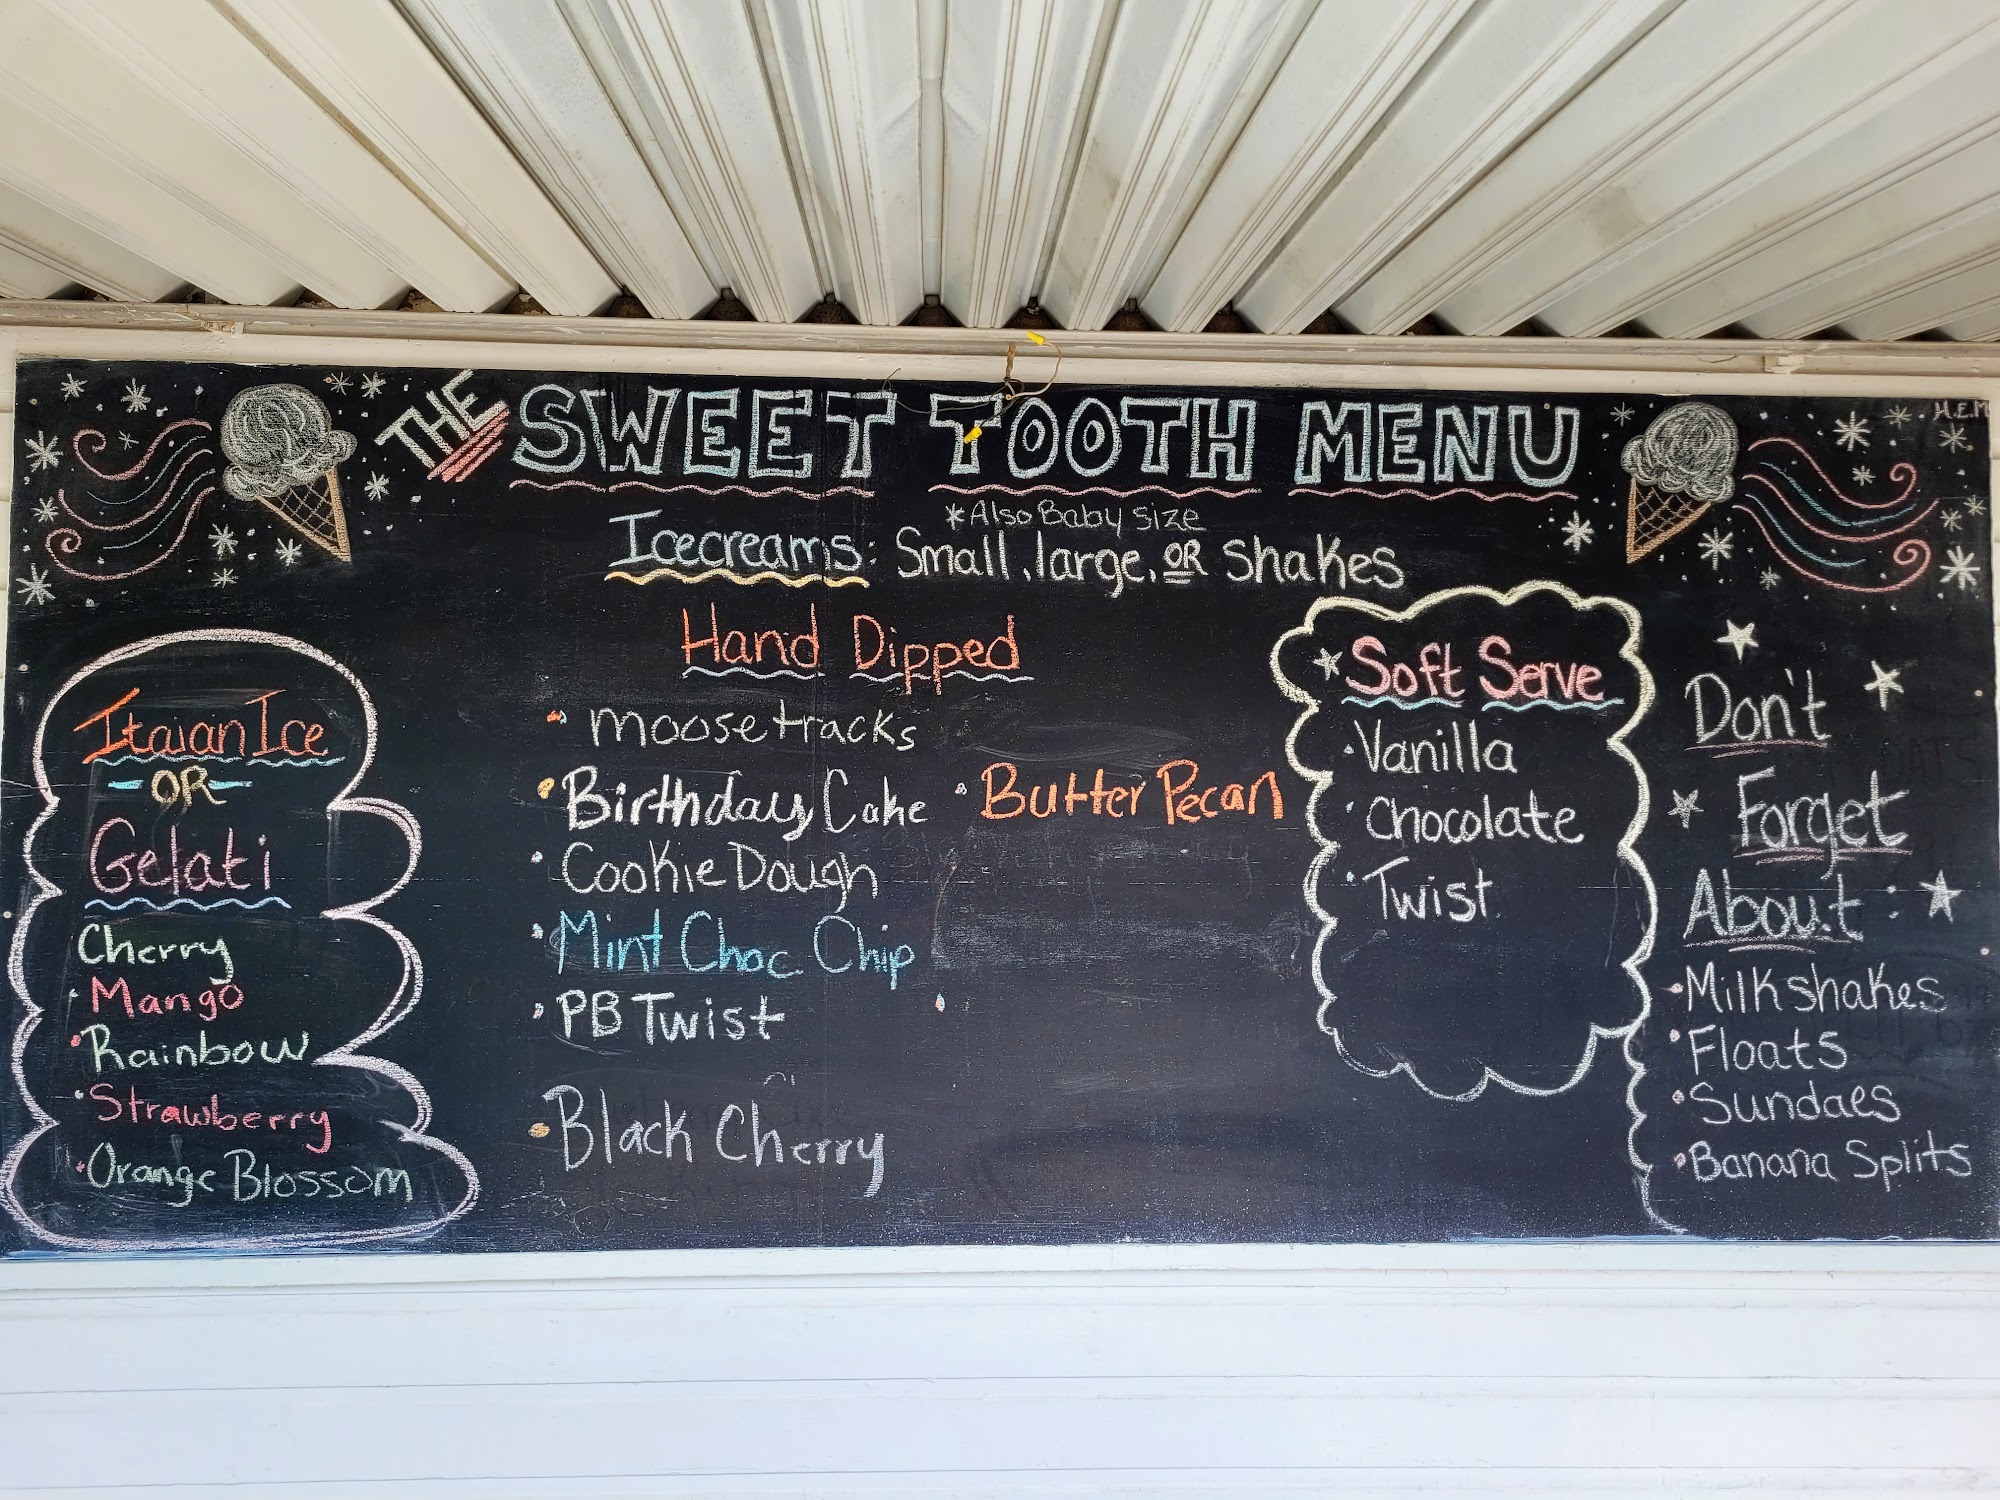 THE SWEET TOOTH MENU
H.E.M
*Also Baby size
Icecreams: Small, large, OR Shakes
Itaian Ice
OR
Gelati
Cherry
• Mango
• Rainbow
• Strawberry
• Orange Blossom
Hand Dipped
• moosetracks
• Birthday Cake
• Butter Pecan
• Cookie Dough
• Mint Choc Chip
• PB Twist
• Black Cherry
* Soft Serve
• Vanilla
• Chocolate
• Twist
Don't
Forget
About:
• Milkshakes
• Floats
• Sundaes
• Banana Splits